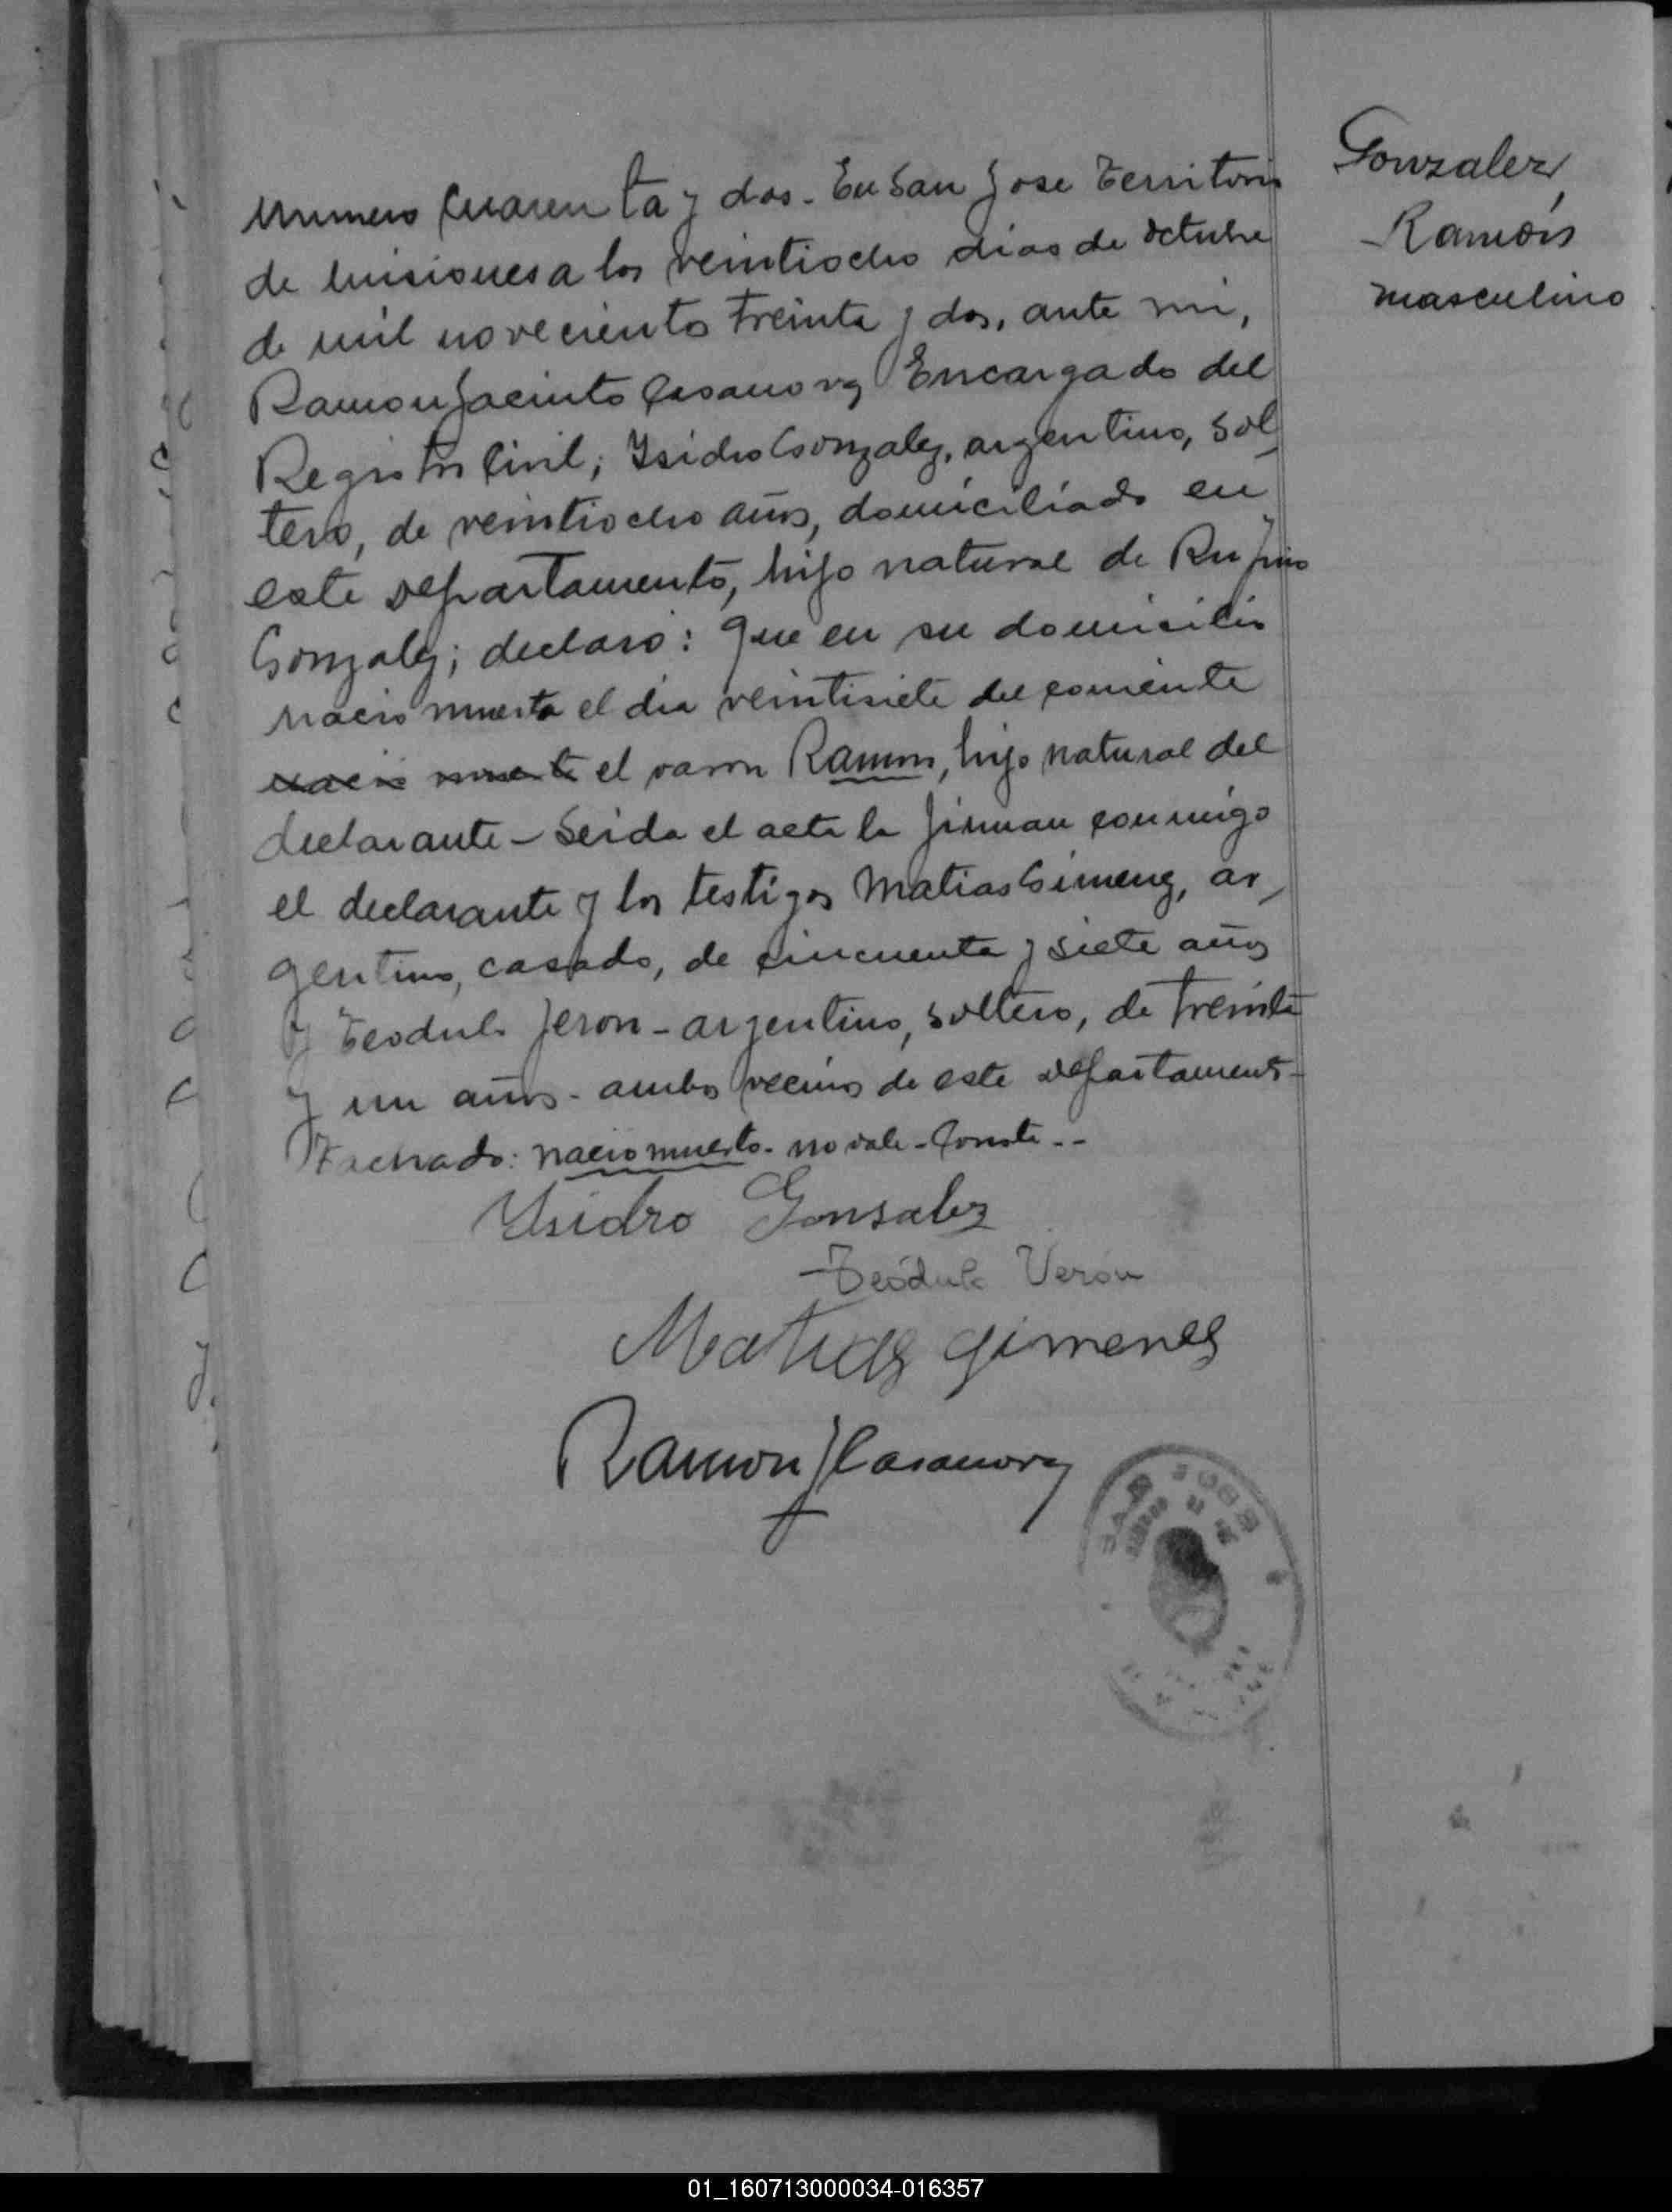 Gonzalez,
Ramón
masculino
Numero cuarenta y dos. En San Jose Territorio
de Misiones a los veintiocho dias de octubre
de mil noveciento treinta y dos, ante mi,
Ramon Jacinto Casanova Encargado del
Registro Civil; Ysidro Gonzalez, argentino, sol
tero, de veintiocho años, domiciliado en
este departamento, hijo natural de Rufino
Gonzalez; declaro: que en su domicilio
nacio muerto el dia veintisiete del corriente
nacio muerto el varon Ramon, hijo natural del
declarante - Leida el acta la firman conmigo
el declarante y los testigos Matias Gimenez, ar
gentino, casado, de cincuenta y siete años
y Teodulo Veron - argentino, soltero, de treinta
y un años - ambos vecinos de este departamento -
Tachado: nacio muerto - no vale - Conste - -
Ysidro Gonsalez
Teódulo Verón
Matias Gimenes
Ramon J Casanova
SAN JOSE
01_160713000034-016357